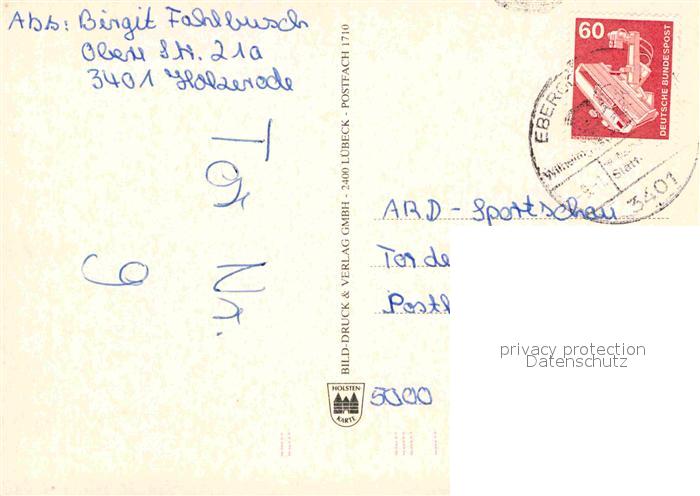 Abs: Birgit Fahlbusch
Obere Str. 21a
3401 Holzerode
Tor
Nr.
9
BILD-DRUCK & VERLAG GMBH - 2400 LÜBECK - POSTFACH 1710
HOLSTEN-
KARTE
60
DEUTSCHE BUNDESPOST
3401
ARD - Sportschau
Tor de
Postf
5000
privacy protection
Datenschutz